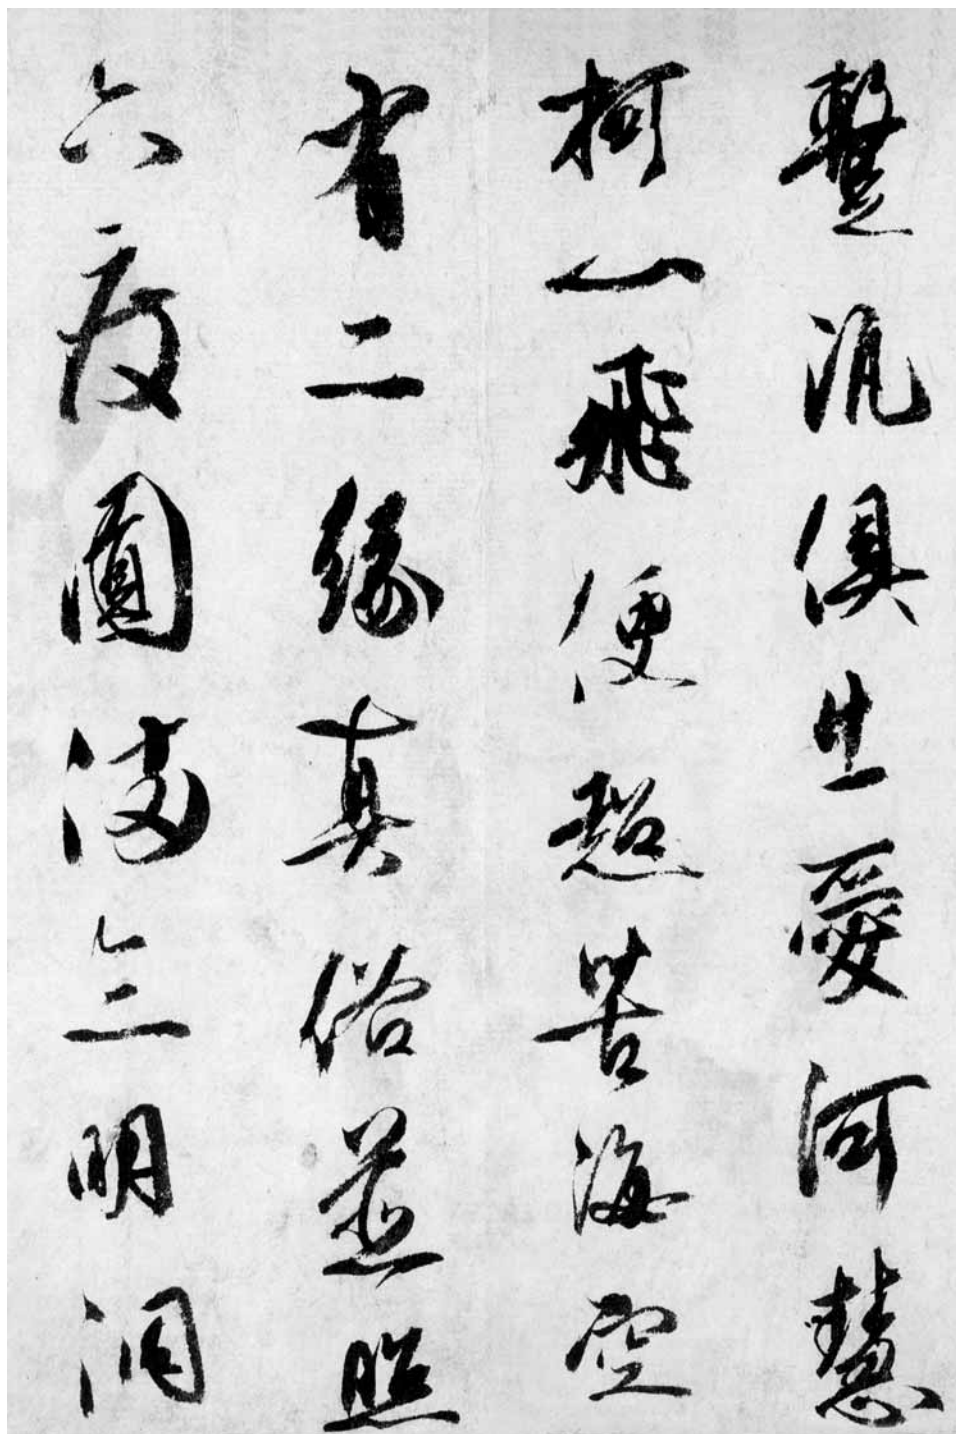 蹔汎俱出愛河慧
柯一飛便超苦海空
有二緣真俗並照
六度圓滿三明洞